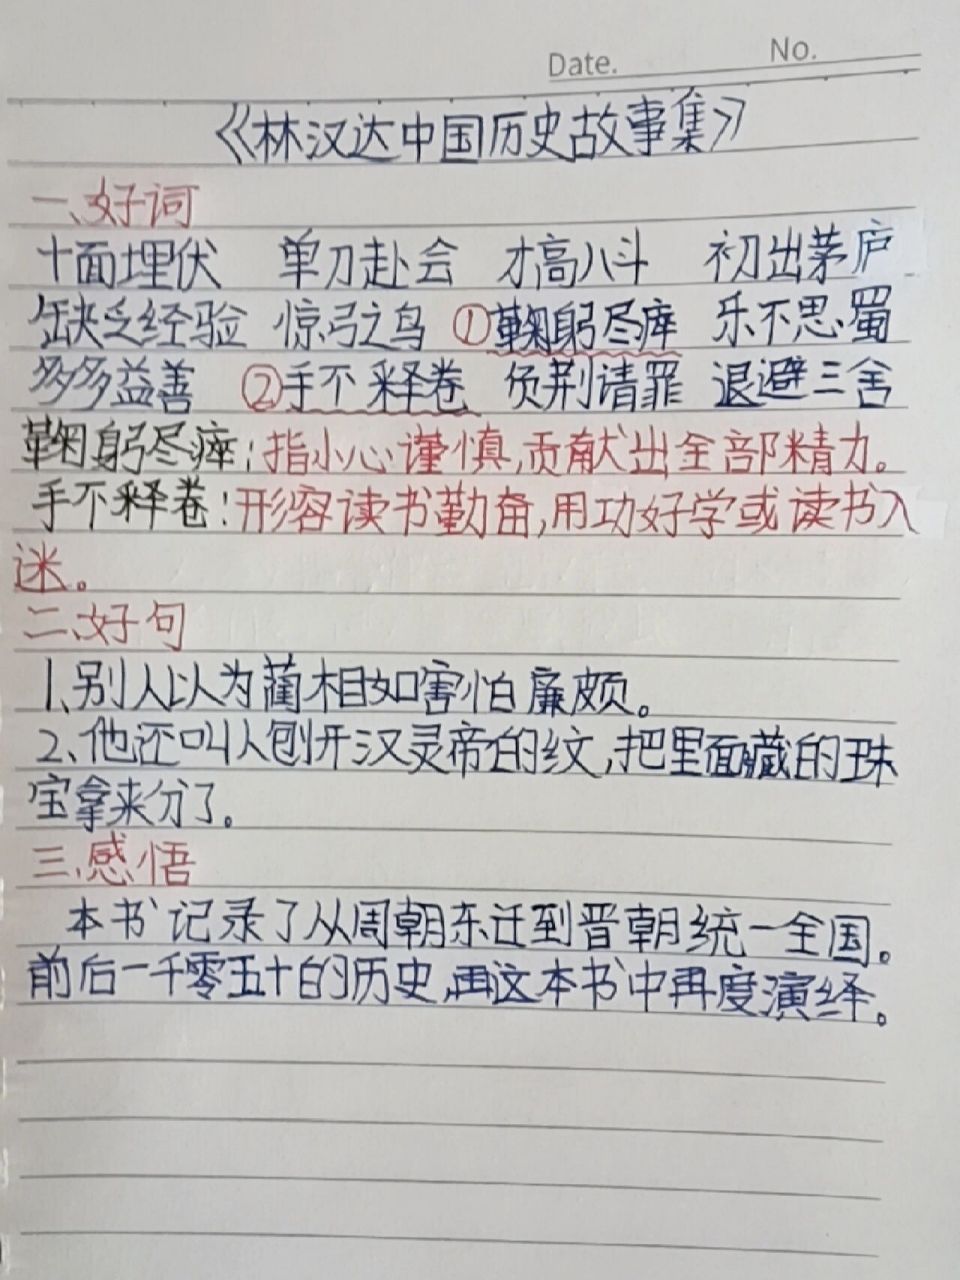 Date. No.
《林汉达中国历史故事集》
一、好词
十面埋伏 单刀赴会 才高八斗 初出茅庐
缺乏经验 惊弓之鸟 ①鞠躬尽瘁 乐不思蜀
多多益善 ②手不释卷 负荆请罪 退避三舍
鞠躬尽瘁：指小心谨慎，贡献出全部精力。
手不释卷：形容读书勤奋，用功好学或读书入
迷。
二、好句
1、别人以为蔺相如害怕廉颇。
2、他还叫人刨开汉灵帝的纹，把里面藏的珠
宝拿来分了。
三、感悟
本书记录了从周朝东迁到晋朝统一全国。
前后一千零五十的历史，再这本书中再度演绎。